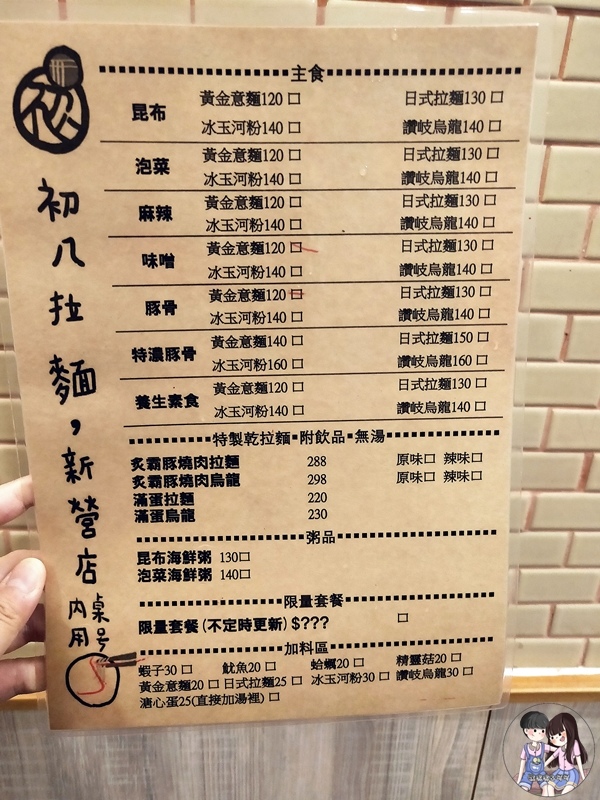 初
初八拉麵，新營店
內用 桌号
主食
昆布 黃金意麵120 口 日式拉麵130 口
冰玉河粉140 口 讚岐烏龍140 口
泡菜 黃金意麵120 口 日式拉麵130 口
冰玉河粉140 口 讚岐烏龍140 口
麻辣 黃金意麵120 口 日式拉麵130 口
冰玉河粉140 口 讚岐烏龍140 口
味噌 黃金意麵120 口 日式拉麵130 口
冰玉河粉140 口 讚岐烏龍140 口
豚骨 黃金意麵120 口 日式拉麵130 口
冰玉河粉140 口 讚岐烏龍140 口
特濃豚骨 黃金意麵140 口 日式拉麵150 口
冰玉河粉160 口 讚岐烏龍160 口
養生素食 黃金意麵120 口 日式拉麵130 口
冰玉河粉140 口 讚岐烏龍140 口
特製乾拉麵▪附飲品▪無湯
炙霸豚燒肉拉麵 288 原味口 辣味口
炙霸豚燒肉烏龍 298 原味口 辣味口
滿蛋拉麵 220
滿蛋烏龍 230
粥品
昆布海鮮粥 130口
泡菜海鮮粥 140口
限量套餐
限量套餐(不定時更新) $??? 口
加料區
蝦子30 口 魷魚20 口 蛤蠣20 口 精靈菇20 口
黃金意麵20 口 日式拉麵25 口 冰玉河粉30 口 讚岐烏龍30 口
溏心蛋25(直接加湯裡) 口